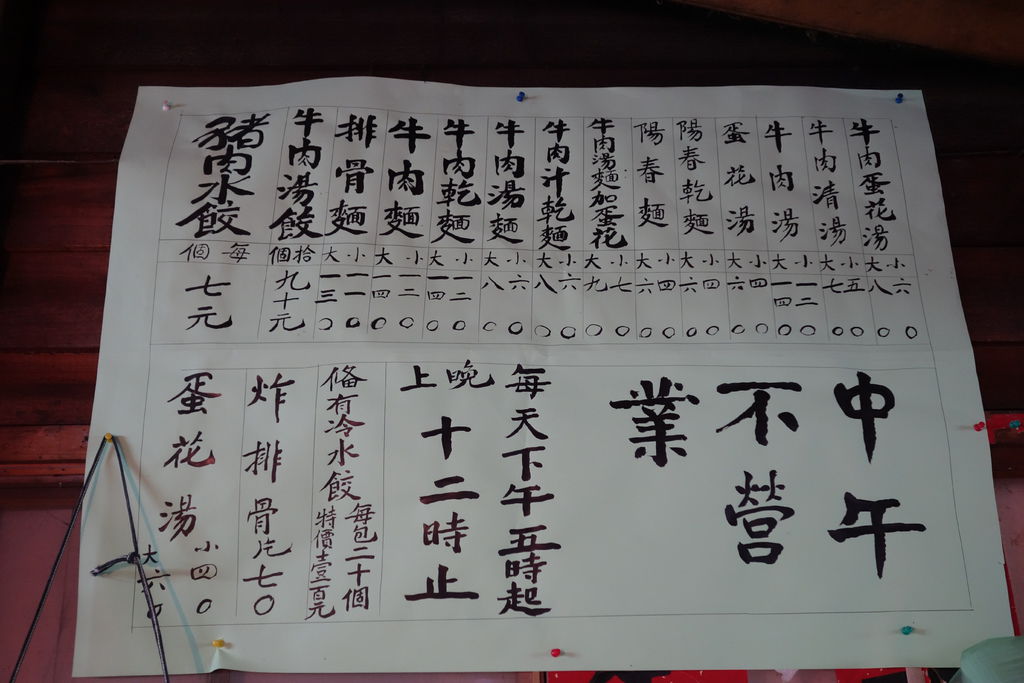 牛肉蛋花湯
小六〇
大八〇
牛肉清湯
小五〇
大七〇
牛肉湯
小一二〇
大一四〇
蛋花湯
小四〇
大六〇
陽春乾麵
小四〇
大六〇
陽春麵
小四〇
大六〇
牛肉湯麵加蛋花
小七〇
大九〇
牛肉汁乾麵
小六〇
大八〇
牛肉湯麵
小六〇
大八〇
牛肉乾麵
小一二〇
大一四〇
牛肉麵
小一二〇
大一四〇
排骨麵
小一一〇
大一三〇
牛肉湯餃
拾個
九十元
豬肉水餃
每個
七元
中午
不營
業
每天下午五時起
晚上
十二時止
備有冷水餃
每包二十個
特價壹百元
炸排骨片七〇
蛋花湯
小四〇
大六〇